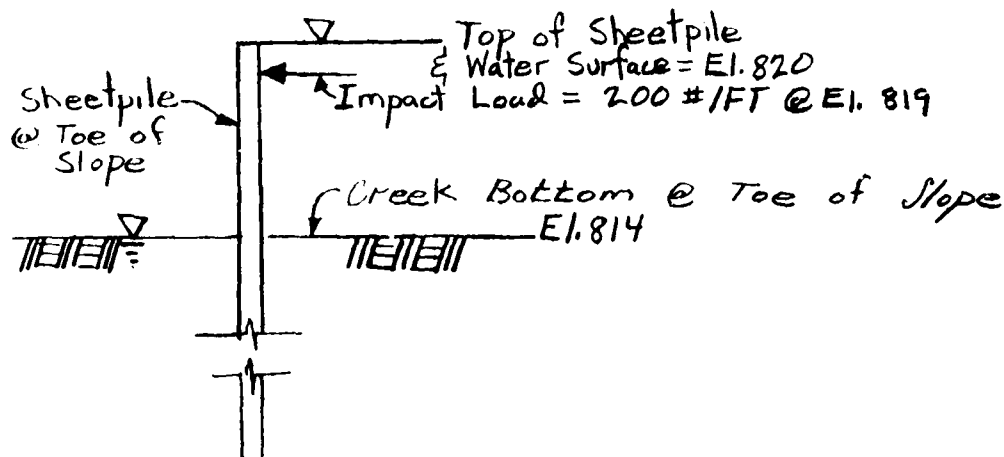 Top of Sheetpile
& Water Surface = El. 820
Impact Load = 200 #/FT @ El. 819
Sheetpile
@ Toe of
Slope
Creek Bottom @ Toe of Slope
El. 814